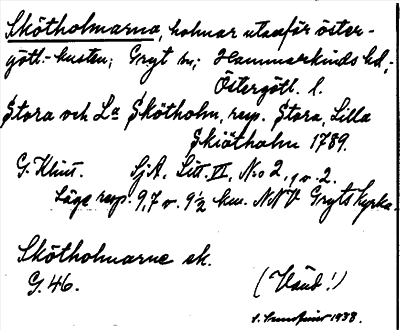 Skötholmarna, holmar utanför öster-
götl.-kusten; Gryt sn; Hammarkinds hd,;
Östergötl. l.
Stora och La Skötholm, resp. Stora, Lilla
Skiötholm 1789.
G. Klint. SjA. Litt. VI, No 2, 9 v. 2.
Läge resp. 9,7 o. 9½ km. NNV Gryts kyrka.
Skötholmarne ek.
G. 46.
(Vänd!)
1938.